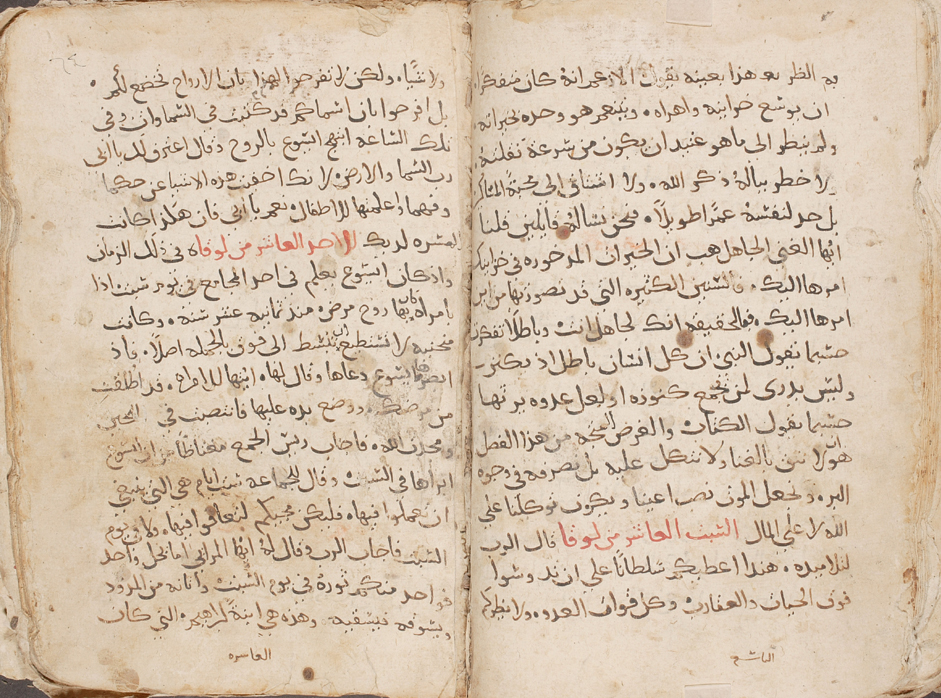 بهم الظر بعد هذا بعينه بقول الانجيل انه كان متفكرا
ان يوسع خزاينه واهراه ويتنعم هو وحده بخيراته
ولم ينظر الى ما هو عتيد ان يكون من سرعة نقلته
لا خطر بباله ذكر الله ولا اشتاق الى محبة المساكين
بل حد لنفسه عمرا طويلا فنحن نساله قايلين قلنا
ايها الغني الجاهل هب ان الخيرات المدخوره في خزاينك
امرها اليك والسنين الكثيره التي قد تصورتها من اين
امرها اليك فبالحقيقه انك لجاهل انت وباطلا تفكرت
حسبما يقول النبي ان كل انسان باطل اذ يكنز
وليس يدرى لمن يجمع كنوزه او لعل عدوه يرثها
حسبما يقول الكتاب والغرض المتجه من هذا الفصل
هو ان لا نثق بالغنا ولا نتكل عليه بل نصرفه في وجوه
البر ونجعل الموت نصب اعيننا ويكون توكلنا على
الله لا على المال السبت العاشر من لوقا قال الرب
لتلاميذه هندا اعطيكم سلطانا على ان تدوسوا
فوق الحيات والعقارب وكل قوات العدو ولا يضركم
التاسع
ولا شيا ولكن لا تفرحوا بهذا بان الارواح تخضع لكم
بل افرحوا بان اسماكم قد كتبت في السماوات وفي
تلك الساعه ابتهج ايسوع بالروح وقال اعترف لك يا ابي
رب السما والارض لانك اخفيت هذه الاشيا عن حكما
وفهما واعلنتها للاطفال نعم يا ابي فان هكذا كانت
المسره لديك الاحد العاشر من لوقا في ذلك الزمان
واذ كان ايسوع يعلم في احد المجامع في يوم سبت اذا
بامراة بها روح مرض منذ ثمانيه عشر سنه وكانت
منحنيه لا تستطيع ان تنبسط الى فوق بالجمله اصلا فاذ
ابصرها ايسوع دعاها وقال لها ايتها الامراه قد اطلقت
من مرضك ووضع يده عليها فانتصبت في الحين
ومجدت الله فاجاب ريس المجمع مغتاظا من ان ايسوع
ابراها في السبت وقال للجماعه ستة ايام هي التي ينبغي
ان تعملوا فيها فليكن مجيكم لتعافوا فيها ولا في يوم
السبت فاجاب الرب وقال له ايها المراي اما يحل واحد
فواحد منكم ثورة في يوم السبت واتانه من المدود
ويسوقه فيسقيه وهذه هي ابنة لابراهيم التي كان
العاشره